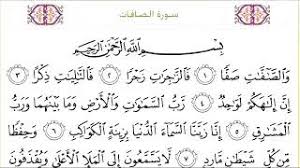 سورة الصافات
بِسْمِ ٱللَّهِ ٱلرَّحْمَٰنِ ٱلرَّحِيمِ
وَٱلصَّٰٓفَّٰتِ صَفًّا ١ فَٱلزَّٰجِرَٰتِ زَجْرًا ٢ فَٱلتَّٰلِيَٰتِ ذِكْرًا ٣
إِنَّ إِلَٰهَكُمْ لَوَٰحِدٌ ٤ رَّبُّ ٱلسَّمَٰوَٰتِ وَٱلْأَرْضِ وَمَا بَيْنَهُمَا وَرَبُّ
ٱلْمَشَٰرِقِ ٥ إِنَّا زَيَّنَّا ٱلسَّمَآءَ ٱلدُّنْيَا بِزِينَةٍ ٱلْكَوَاكِبِ ٦ وَحِفْظًا
مِّن كُلِّ شَيْطَٰنٍ مَّارِدٍ ٧ لَّا يَسَّمَّعُونَ إِلَى ٱلْمَلَإِ ٱلْأَعْلَىٰ وَيُقْذَفُونَ